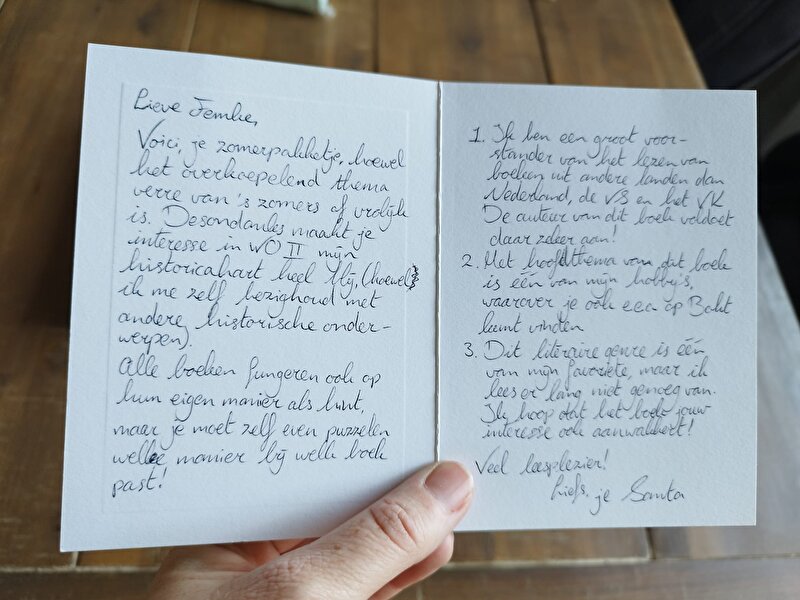 Lieve Femke,
Voici, je zomerpakketje, hoewel
het overkoepelend thema
verre van 's zomers of vrolijk
is. Desondanks maakt je
interesse in WO II mijn
historicahart heel blij, (hoewel
ik me zelf bezighoud met
andere historische onder-
werpen).
Alle boeken fungeren ook op
hun eigen manier als hint,
maar je moet zelf even puzzelen
welke manier bij welk boek
past!
1. Ik ben een groot voor-
stander van het lezen van
boeken uit andere landen dan
Nederland, de VS en het VK
De auteur van dit boek voldoet
daar zeker aan!
2. Het hoofdthema van dat boek
is één van mijn hobby's,
waarover je ook een op Bokt
kunt vinden
3. Dit literaire genre is één
van mijn favoriete, maar ik
lees er lang niet genoeg van.
Ik hoop dat het boek jouw
interesse ook aanwakkert!
Veel leesplezier!
Liefs, je Santa